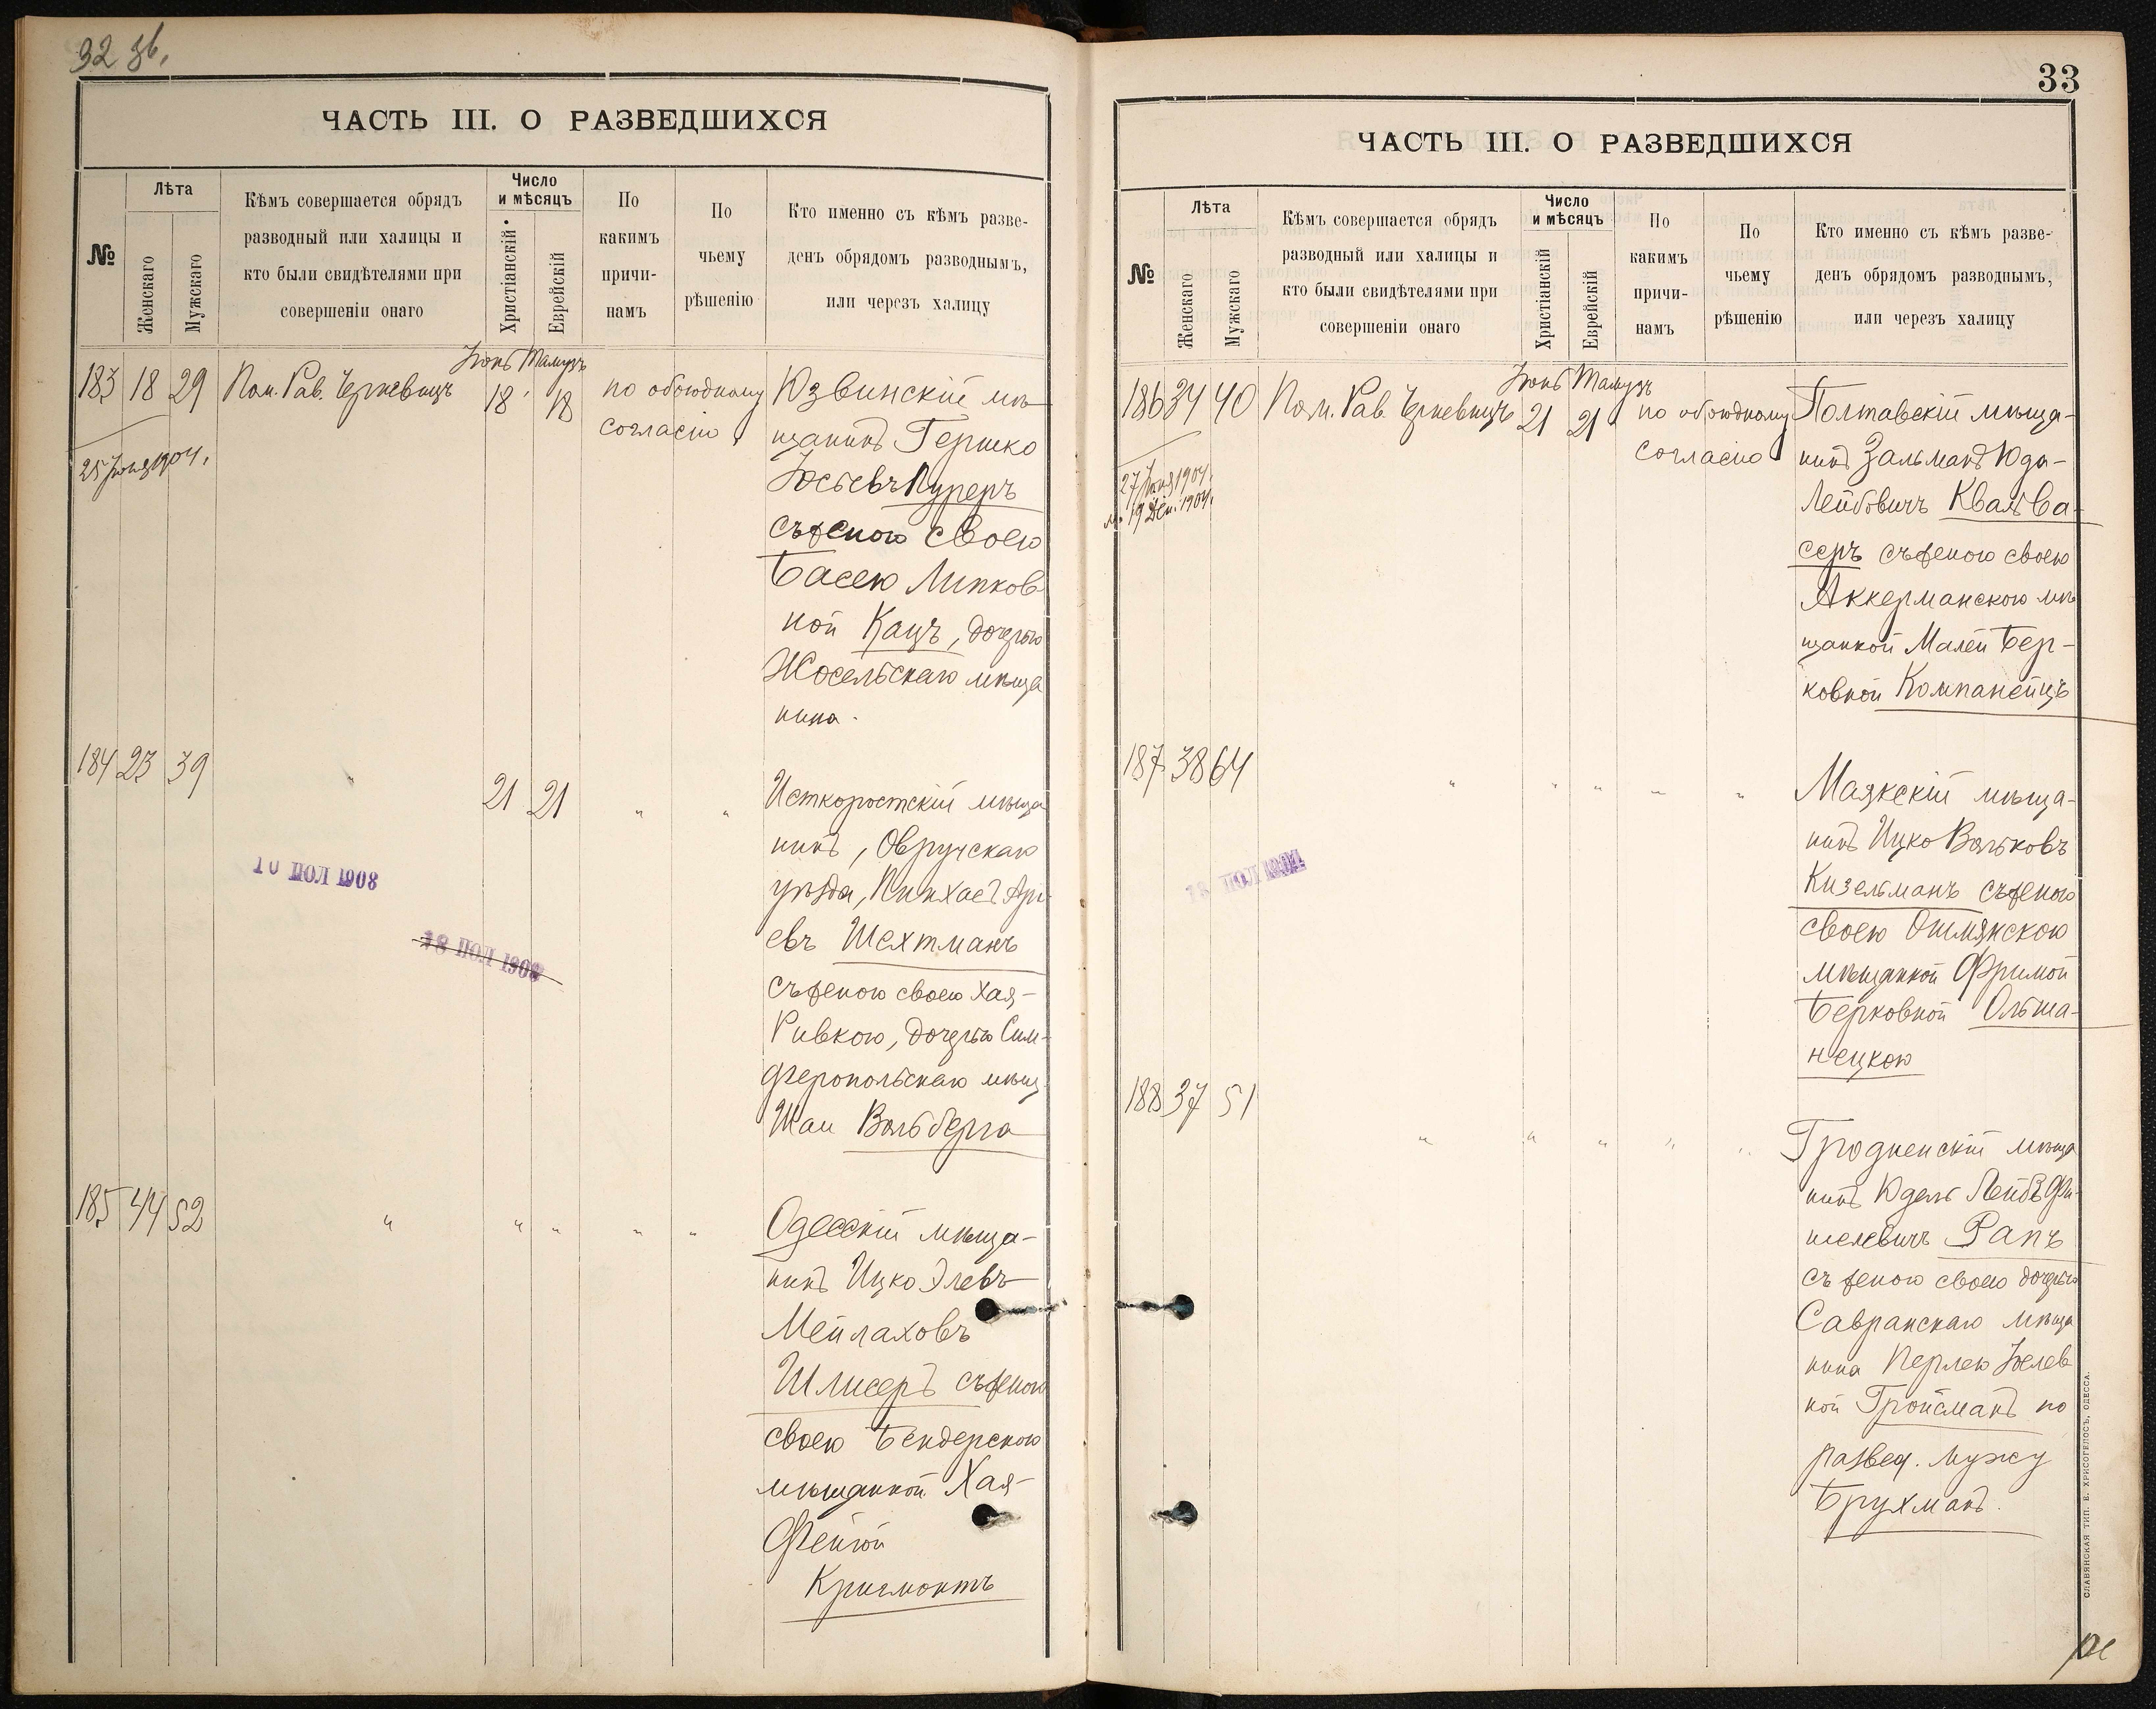 32 зв.
ЧАСТЬ III. О РАЗВЕДШИХСЯ
№
Лѣта
Женскаго
Мужскаго
Кѣмъ совершается обрядъ
разводный или халицы и
кто были свидѣтелями при
совершеніи онаго
Число
и мѣсяцъ
Христіанскій
Еврейскій
По
какимъ
причи-
намъ
По
чьему
рѣшенію
Кто именно съ кѣмъ разве-
денъ обрядомъ разводнымъ,
или черезъ халицу
Іюнь Тамузъ
183 18 29 Пом. Рав. 18 18 по обоюдному Юзвинскій мѣ
согласію щанинъ Гершко
25 Іюня 1904.
Іосьевъ Пуреръ
съ женою своею
Басею Липков
ной Кацъ, дочерью
Жосельскаго мѣща
нина.
184 23 39 " 21 21 " " Искоростскій мѣща
нинъ, Овручскаго
уѣзда, Пинхасъ Арі
евъ Шехтманъ
съ женою своею Хая-
Ривкою, дочерью Сим-
феропольскаго мѣщ.
Шаи Вольберга
10 ІЮЛ 1908
18 ІЮЛ 1908
185 44 52 " " " " " Одесскій мѣща-
нинъ Ицко Элевъ
Мейлаховъ
Шлисеръ съ женою
своею Бендерскою
мѣщанкой Хая-
Фейгой
Кригмонтъ
33
ЧАСТЬ III. О РАЗВЕДШИХСЯ
№
Лѣта
Женскаго
Мужскаго
Кѣмъ совершается обрядъ
разводный или халицы и
кто были свидѣтелями при
совершеніи онаго
Число
и мѣсяцъ
Христіанскій
Еврейскій
По
какимъ
причи-
намъ
По
чьему
рѣшенію
Кто именно съ кѣмъ разве-
денъ обрядомъ разводнымъ,
или черезъ халицу
Іюнь Тамузъ
186 34 40 Пом. Рав. 21 21 по обоюдному Полтавскій мѣща-
согласію нинъ Зальманъ Юда-
27 Іюня 1904.
19 Дек. 1904.
Лейбовичъ Квальва-
серъ съ женою своею
Аккерманскою мѣ
щанкой Малей Бер-
ковной Компанейцъ
187 38 64 " " " " " Маякскій мѣща-
нинъ Ицко Вольковъ
Кизельманъ съ женою
своею Ошмянскою
мѣщанкой Фримой
Берковной Ольша-
нецкою
188 37 51 " " " " " Гродненскій мѣща
нинъ Юдель Лейбъ Фи-
шелевичъ Рапъ
съ женою своею дочерью
Савранскаго мѣща
нина Перлею Іселев
ной Гройсманъ по
развед. мужу
Брухманъ.
СЛАВЯНСКАЯ ТИП. Е. ХРИСОГЕЛОСЪ, ОДЕССА.